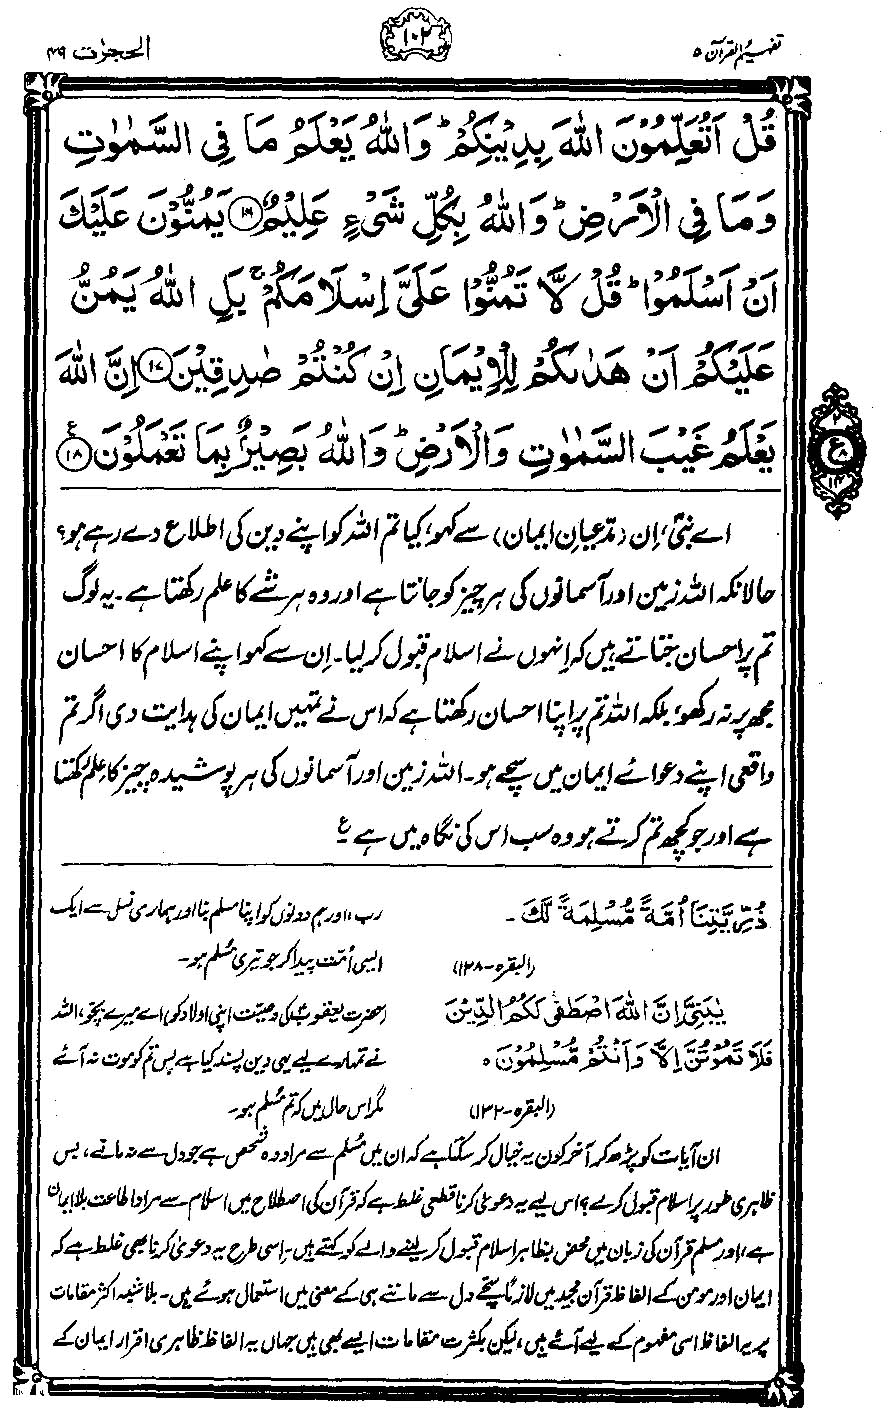 تفہیم القرآن ۵
۱۰۲
الحجرٰت ۴۹
قُلْ اَتُعَلِّمُوْنَ اللّٰهَ بِدِيْنِكُمْ ؕ وَاللّٰهُ يَعْلَمُ مَا فِى السَّمٰوٰتِ
وَمَا فِى الْاَرْضِ ؕ وَاللّٰهُ بِكُلِّ شَىْءٍ عَلِيْمٌ ﴿۱۶﴾ يَمُنُّوْنَ عَلَيْكَ
اَنْ اَسْلَمُوْا ؕ قُلْ لَّا تَمُنُّوْا عَلَىَّ اِسْلَامَكُمْ ۚ بَلِ اللّٰهُ يَمُنُّ
عَلَيْكُمْ اَنْ هَدٰىكُمْ لِلْاِيْمَانِ اِنْ كُنْتُمْ صٰدِقِيْنَ ﴿۱۷﴾ اِنَّ اللّٰهَ
يَعْلَمُ غَيْبَ السَّمٰوٰتِ وَالْاَرْضِ ؕ وَاللّٰهُ بَصِيْرٌۢ بِمَا تَعْمَلُوْنَ ﴿۱۸﴾ ع
ع ۸ ۱۴
اے نبیؐ، اِن (مدّعیانِ ایمان) سے کہو، کیا تم اللہ کو اپنے دین کی اطلاع دے رہے ہو؟
حالانکہ اللہ زمین اور آسمانوں کی ہر چیز کو جانتا ہے اور وہ ہر شے کا علم رکھتا ہے۔ یہ لوگ
تم پر احسان جتاتے ہیں کہ اِنہوں نے اسلام قبول کر لیا۔ اِن سے کہو اپنے اسلام کا احسان
مجھ پر نہ رکھو، بلکہ اللہ تم پر اپنا احسان رکھتا ہے کہ اس نے تمہیں ایمان کی ہدایت دی اگر تم
واقعی اپنے دعوائے ایمان میں سچے ہو۔ اللہ زمین اور آسمانوں کی ہر پوشیدہ چیز کا علم رکھتا
ہے اور جو کچھ تم کرتے ہو وہ سب اس کی نگاہ میں ہے ع
ذُرِّيَّتِنَآ اُمَّةً مُّسْلِمَةً لَّكَ۔
(البقرہ-۱۲۸)
رب، اور ہم دونوں کو اپنا مسلم بنا اور ہماری نسل سے ایک
ایسی اُمّت پیدا کر جو تیری مُسلم ہو۔
يٰبَنِىَّ اِنَّ اللّٰهَ اصْطَفٰى لَكُمُ الدِّيْنَ
فَلَا تَمُوْتُنَّ اِلَّا وَاَنْتُمْ مُّسْلِمُوْنَ ○
(البقرہ-۱۳۲)
(حضرت یعقوبؑ کی وصیّت اپنی اولاد کو) اے میرے بچّو، اللہ
نے تمہارے لیے یہی دین پسند کیا ہے پس تم کو موت نہ آئے
مگر اس حال میں کہ تم مُسلم ہو۔
ان آیات کو پڑھ کر آخر کون یہ خیال کر سکتا ہے کہ ان میں مُسلم سے مراد وہ شخص ہے جو دل سے نہ مانے، بس
ظاہری طور پر اسلام قبول کر لے؟ اس لیے یہ دعویٰ کرنا قطعی غلط ہے کہ قرآن کی اصطلاح میں اسلام سے مراد اطاعت بلا ایمان
ہے، اور مسلم قرآن کی زبان میں محض بظاہر اسلام قبول کر لینے والے کو کہتے ہیں۔ اِسی طرح یہ دعویٰ کرنا بھی غلط ہے کہ
ایمان اور مومن کے الفاظ قرآن مجید میں لازماً سچّے دل سے ماننے ہی کے معنی میں استعمال ہوئے ہیں۔ بلا شبہ اکثر مقامات
پر یہ الفاظ اسی مفہوم کے لیے آئے ہیں، لیکن بکثرت مقامات ایسے بھی ہیں جہاں یہ الفاظ ظاہری اقرار ایمان کے